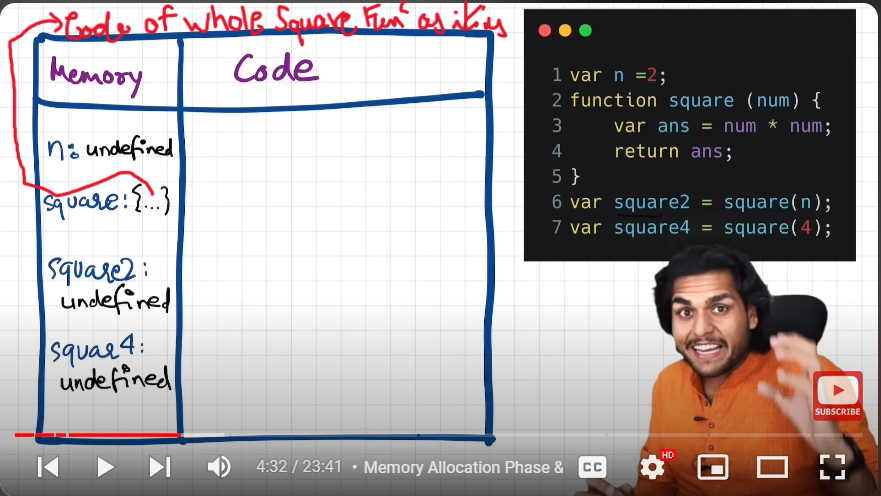 Code of whole Square Fun^n as it is
Memory
Code
n: undefined
square: {...}
square2:
undefined
squar4:
undefined
1 var n =2;
2 function square (num) {
3 var ans = num * num;
4 return ans;
5 }
6 var square2 = square(n);
7 var square4 = square(4);
SUBSCRIBE
4:32 / 23:41 • Memory Allocation Phase &
CC
HD